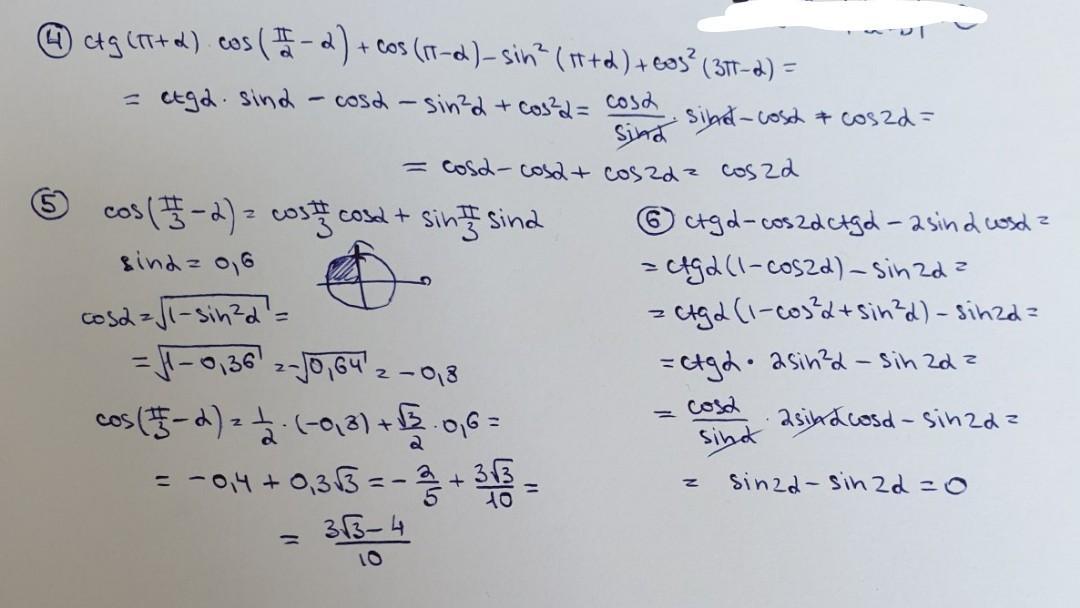 ④ ctg(π+α) · cos(π/2 - α) + cos(π-α) - sin²(π+α) + cos²(3π-α) =
= ctgα · sinα - cosα - sin²α + cos²α = cosα/sinα · sinα - cosα + cos2α =
= cosα - cosα + cos2α = cos2α
⑤ cos(π/3 - α) = cos π/3 cosα + sin π/3 sinα
sinα = 0,6
cosα = √(1-sin²α) =
= √(1-0,36) = -√0,64 = -0,8
cos(π/3 - α) = 1/2 · (-0,8) + √3/2 · 0,6 =
= -0,4 + 0,3√3 = - 2/5 + 3√3/10 =
= (3√3 - 4)/10
⑥ ctgα - cos2α ctgα - 2sinα cosα =
= ctgα(1-cos2α) - sin2α =
= ctgα(1-cos²α+sin²α) - sin2α =
= ctgα · 2sin²α - sin2α =
= cosα/sinα · 2sinα cosα - sin2α =
= sin2α - sin2α = 0